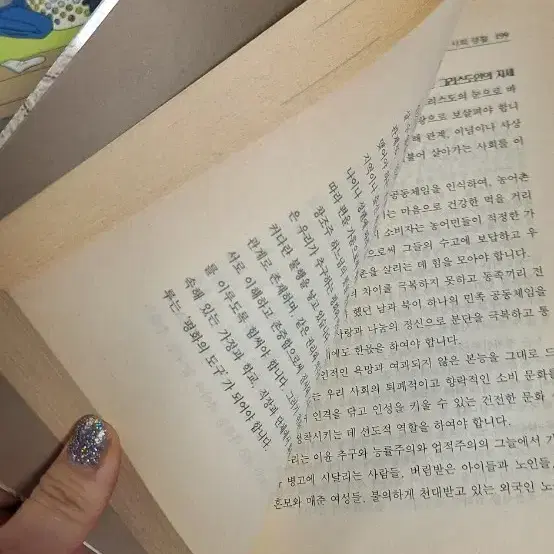 사회 생활 199
그리스도인의 자세
리스도의 눈으로 바
으로 보살펴야 합니
관계, 이념이나 사상
불어 살아가는 사회를 이
공동체임을 인식하여, 농어촌
는 마음으로 건강한 먹을 거리
소비자는 농어민들이 적정한 가
으로써 그들의 수고에 보답하고 우
촌을 살리는 데 힘을 모아야 합니다.
의 차이를 극복하지 못하고 동족끼리 전
했던 남과 북이 하나의 민족 공동체임을
사랑과 나눔의 정신으로 분단을 극복하고 통
에도 한몫을 하여야 합니다.
인적인 욕망과 여과되지 않은 본능을 그대로 드
는 우리 사회의 퇴폐적이고 향락적인 소비 문화를
인격을 닦고 인성을 키울 수 있는 건전한 문화
정착시키는 데 선도적 역할을 하여야 합니다.
리는 이윤 추구와 능률주의와 업적주의의 그늘에서 가
병고에 시달리는 사람들, 버림받은 아이들과 노인들,
혼모와 매춘 여성들, 불의하게 천대받고 있는 외국인 노
지역이나
나이나
따라 편을 가름으로
창조주 하느님의
은, 우리가 추구하는
커다란 불행을 낳고 있습니다.
관계로 존재하며, 같은 권리와
서로 이해하고 존중함으로써
를 이루도록 힘써야 합니다. 그러기
속해 있는 가정과 학교, 직장과 단체에서
루는 '평화의 도구'가 되어야 합니다.